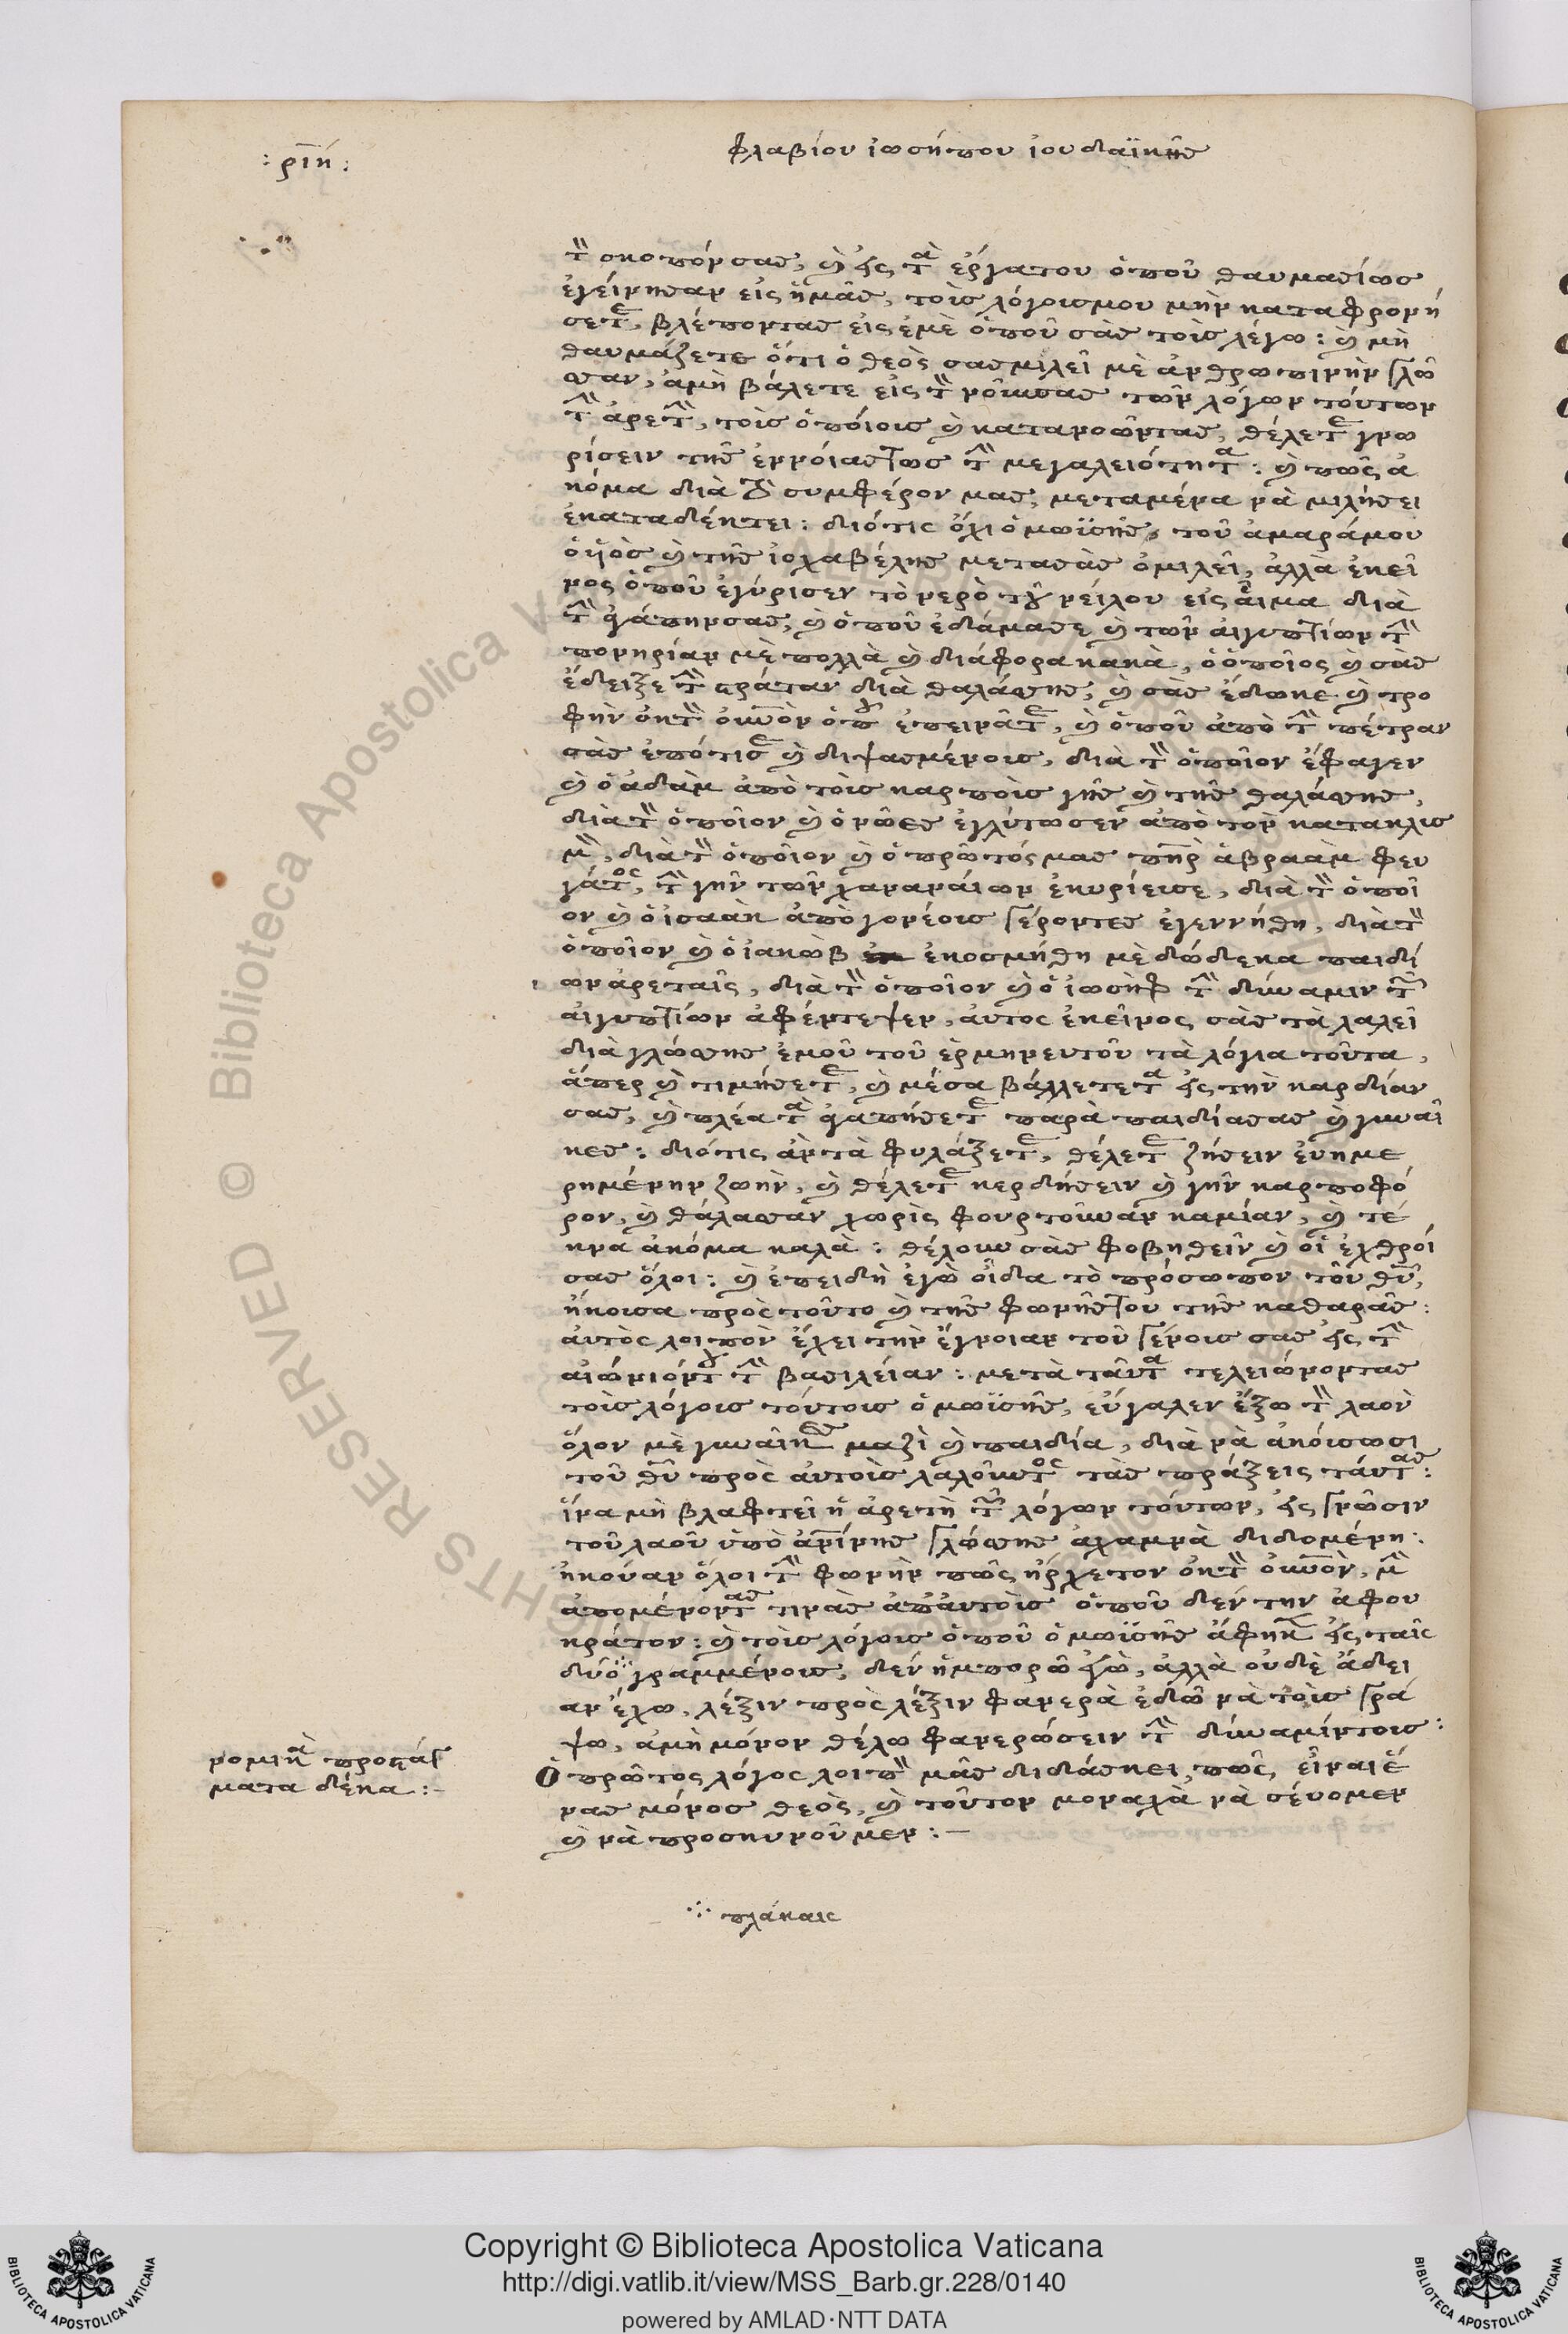 : ριή :
φλαβίου ἰωσήπου ἰουδαϊκῆς
τὸν σκοπόν σας, καὶ εἰς τὰ ἔργατου ὁποῦ θαυμασίως
ἐγείνησαν εἰς ἡμᾶς, τοὶς λόγοισμου μὴν καταφρονή
σετε, βλέποντας εἰς ἐμὲ ὁποῦ σὰς τοὶς λέγω : καὶ μὴ
θαυμάζετε ὅτι ὁ θεὸς σασμιλεῖ μὲ ἀνθρωπινὴν γλῶ
σσαν, ἀμὴ βάλετε εἰς τὸν νοῦνσας τῶν λόγων τούτων
τὴν ἀρετὴν, τοὶς ὁποίοις καὶ κατανοῶντας, θέλετε γνω
ρίσειν τῆς ἐννοίαστως τὴν μεγαλειότητα : καὶ πῶς ἀ
κόμα διὰ τὸ συμφέρον μας, μεταμένα νὰ μιλήσει
ἐκαταδέκτει : διότις ὄχι ὁ μωϊσῆς, τοῦ ἀμαράμου
ὁ ἡὸς καὶ τῆς ἰοχαβέλης μετασὰς ὁμιλεῖ, ἀλλὰ ἐκεῖ
νος ὁποῦ ἐγύρισεν τὸ νερὸ τοῦ νείλου εἰς αἷμα διὰ
τὴν ἀγάπην σας, καὶ ὁποῦ ἐδάμασε καὶ τῶν αἰγυπτίων τὴν
πονηρίαν μὲ πολλὰ καὶ διάφορα κακὰ, ὁ ὁποῖος καὶ σὰς
ἔδειξε τὴν στράταν διὰ θαλάσσης, καὶ σὰς ἔδωκε καὶ τρο
φὴν ἐκ τὸν οὐρανὸν ὁποῦ ἐπεινᾶτε, καὶ ὁποῦ ἀπὸ τὴν πέτραν
σὰς ἐπότισε καὶ διψασμένοις, διὰ τὸν ὁποῖον ἔφαγεν
καὶ ὁ ἀδὰμ ἀπὸ τοὶς καρποὶς γῆς καὶ τῆς θαλάσσης,
διὰ τὸν ὁποῖον καὶ ὁ νῶες ἐγλύτωσεν ἀπὸ τὸν κατακλισ
μὸν, διὰ τὸν ὁποῖον καὶ ὁ πρῶτός μας πὴρ ἀβραὰμ φευ
γάτος, τὴν γῆν τῶν χαναναίων ἐκυρίεισε, διὰ τὸν ὁποῖ
ον καὶ ὁ ἰσαὰκ ἀπὸ γονέοις γέροντες ἐγεννήθη, διὰ τὸν
ὁποῖον καὶ ὁ ἰακὼβ ἐκοσμήθη μὲ δώδεκα παιδί
ων ἀρεταῖς, διὰ τὸν ὁποῖον καὶ ὁ ἰωσὴφ τὴν δύναμιν τῶν
αἰγυπτίων ἀφέντεψεν, αὐτος ἐκεῖνος σὰς τὰ λαλεῖ
διὰ γλώσσης ἐμοῦ τοῦ ἑρμηνευτοῦ τὰ λόγια τοῦτα,
ἅπερ καὶ τιμήσετε, καὶ μέσα βάλλετετα εἰς τὴν καρδίαν
σας, καὶ πλέα τὰ ἀγαπήσετε παρὰ παιδίασας καὶ γυναῖ
κες : διότις ἀντὰ φυλάξετε, θέλετε ζήσειν εὐημε
ρημένην ζωὴν, καὶ θέλετε κερδήσειν καὶ γῆν καρποφό
ρον, καὶ θάλασσαν χωρὶς φουρτοῦναν καμίαν, καὶ τέ
κνα ἀκόμα καλὰ : θέλουν σὰς φοβηθεῖν καὶ οἱ ἐχθροί
σας ὅλοι : καὶ ἐπειδὴ ἐγὼ οἶδα τὸ πρόσωπον τοῦ θῦ,
ἤκοισα πρὸς τοῦτο καὶ τῆς φωνῆστου τῆς καθαρᾶς :
αὐτὸς λοιπὸν ἔχει τὴν ἔγνοιαν τοῦ γένοις σας εἰς τὴν
αἰώνιόντου τὴν βασιλείαν : μετὰ ταῦτα τελειώνοντας
τοὶς λόγοις τούτοις ὁ μωϊσῆς, εὔγαλεν ἔξω τὸν λαὸν
ὅλον μὲ γυναῖκες μαζὶ καὶ παιδία, διὰ νὰ ἀκόισωσι
τοῦ θῦ πρὸς αὐτοὶς λαλοῦντος τὰς πράξεις ταύτας :
ἵνα μὴ βλαφτεῖ ἡ ἀρετὴ τῶν λόγων τούτων, εἰς γνῶσιν
τοῦ λαοῦ ὑπὸ ἀνίνης γλώσσης ἀχαμνὰ διδομένη :
ἠκούαν ὅλοι τὴν φωνὴν πῶς ἤρχετον ἐκ τὸν οὐρανὸν, μὴν
ἀπομένοντας τινὰς ἀπ' αὐτοὶς ὁποῦ δὲν τὴν ἀφου
κράτον : καὶ τοὶς λόγοις ὁποῦ ὁ μωϊσῆς ἄφηκεν εἰς ταῖς
δύο ∴ γραμμένοις, δὲν ἡμπορῶ ἐγὼ, ἀλλὰ οὐδὲ ἄδει
αν ἔχω, λέξιν πρὸς λέξιν φανερὰ ἐδῶ νὰ τοὶς γρά
ψω, ἀμὴ μόνον θέλω φανερώσειν τὴν δύναμίντοις :
νομικὰ προστάγ
ματα δέκα :-
Ὁ πρῶτος λόγος λοιπὸν μᾶς διδάσκει, πῶς, εἶναι ἕ
νας μόνος θεὸς, καὶ τοῦτον μοναχὰ νὰ σέυομεν
καὶ νὰ προσκυνοῦμεν : —
∴ πλάκαις
Copyright © Biblioteca Apostolica Vaticana
http://digi.vatlib.it/view/MSS_Barb.gr.228/0140
powered by AMLAD·NTT DATA